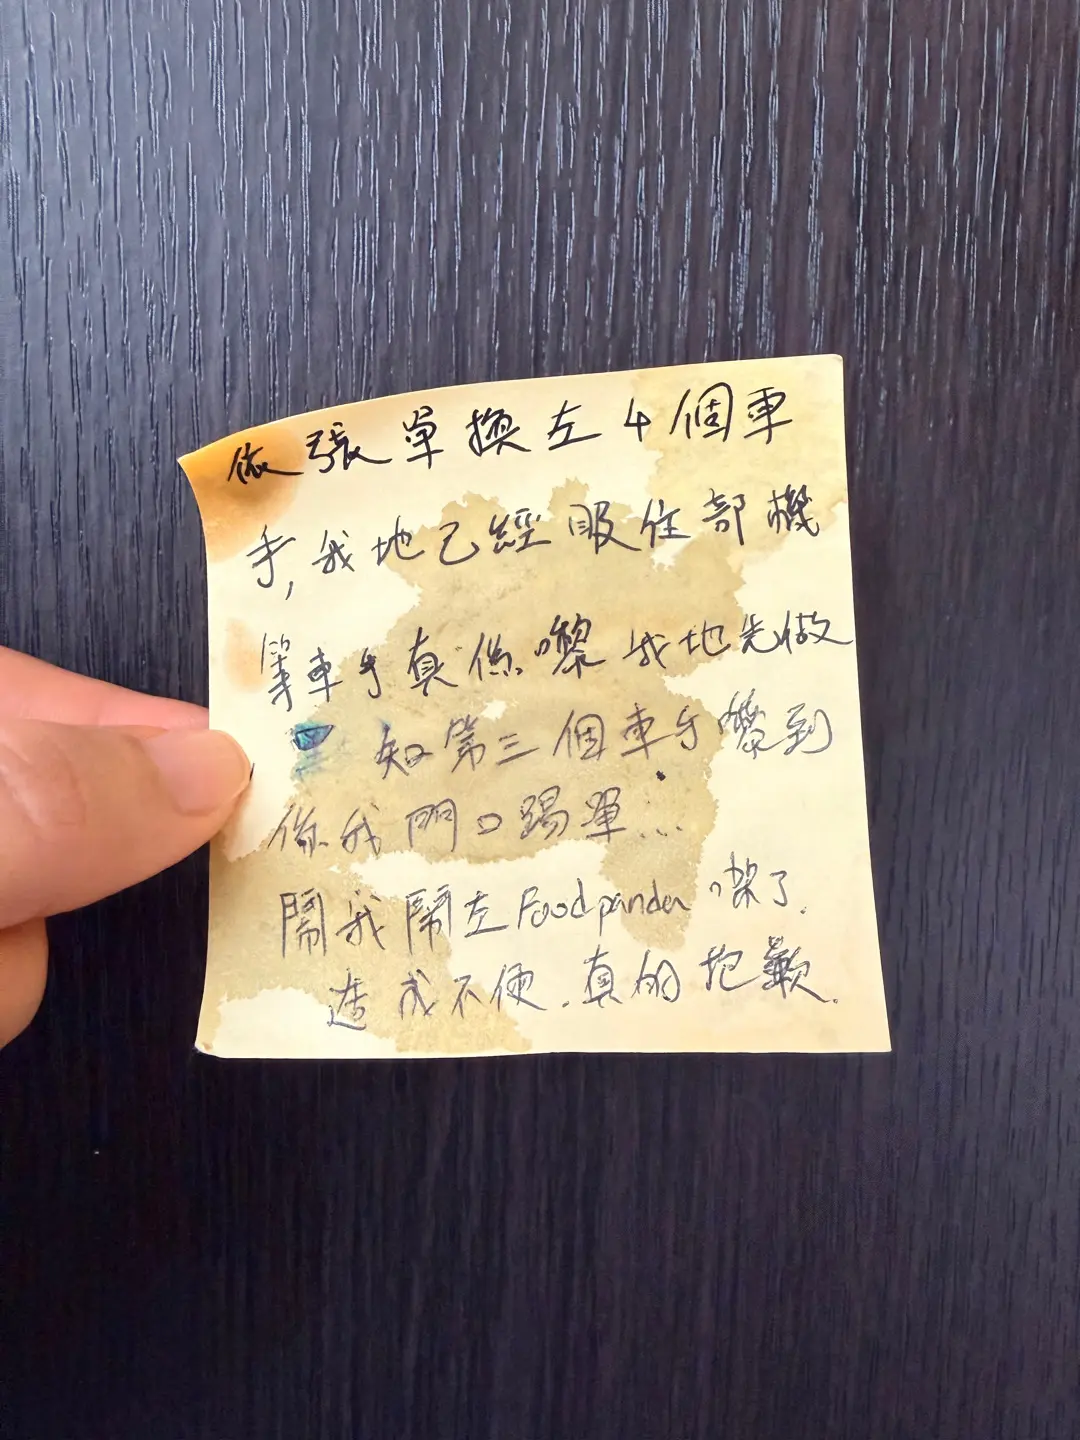 依張單換左4個車
手,我地已經眼住部機
等車手真係嚟我地先做
知第三個車手嚟到
係我門口踢單...
鬧我鬧左Foodpanda 㗎了.
造成不便.真的抱歉.